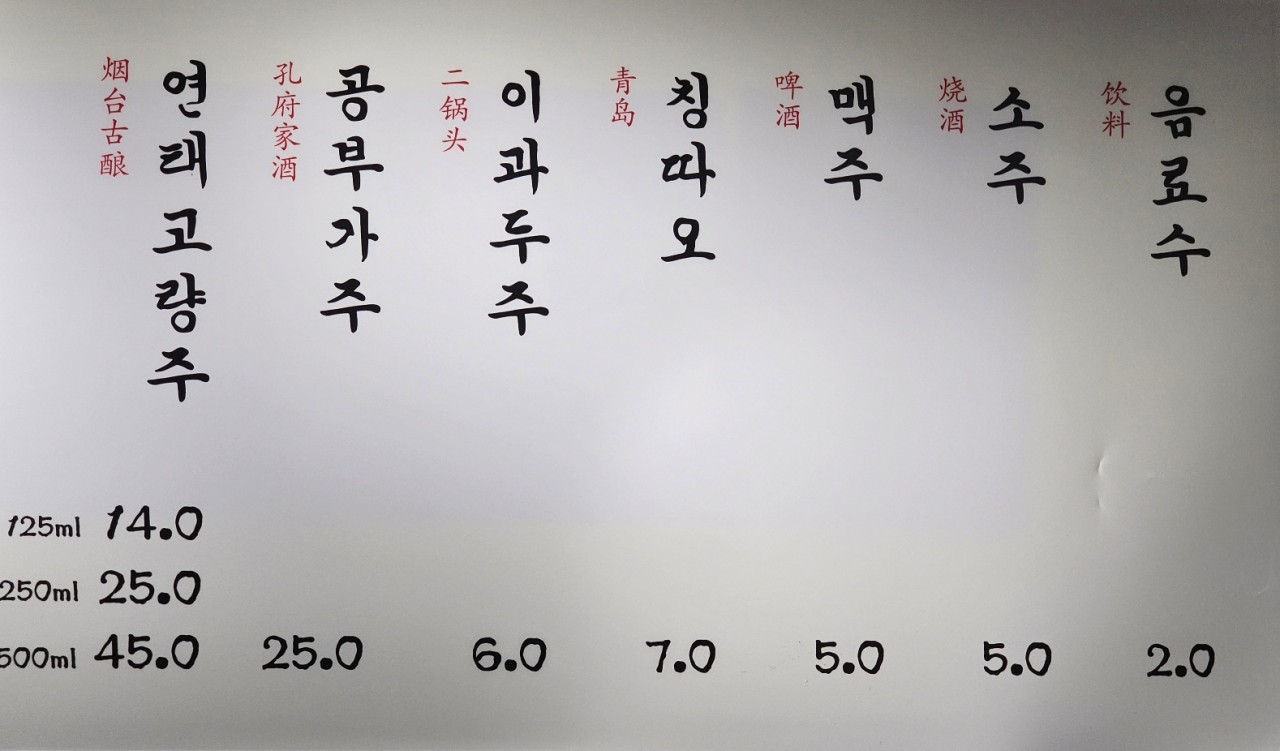 烟台古酿
연태고량주
孔府家酒
공부가주
二锅头
이과두주
青岛
칭따오
啤酒
맥주
烧酒
소주
饮料
음료수
125ml 14.0
250ml 25.0
500ml 45.0 25.0 6.0 7.0 5.0 5.0 2.0